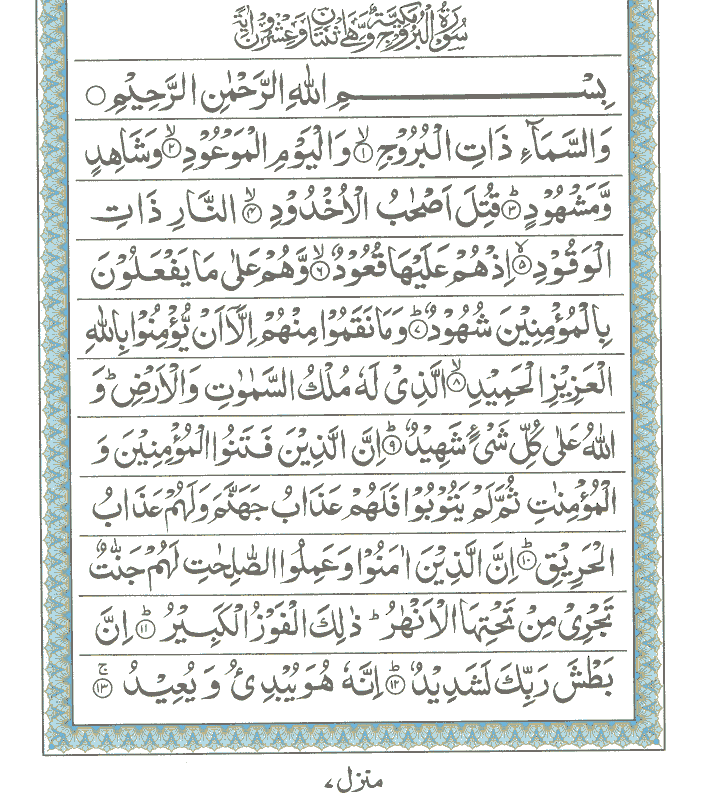 سُوْرَةُ الْبُرُوْجِ مَكِّيَّةٌ وَّهِيَ ثِنْتَانِ وَعِشْرُوْنَ اٰيَةً
بِسْمِ اللهِ الرَّحْمٰنِ الرَّحِيْمِ ○
وَالسَّمَآءِ ذَاتِ الْبُرُوْجِۙ۝۱ وَالْيَوْمِ الْمَوْعُوْدِۙ۝۲ وَشَاهِدٍ
وَّمَشْهُوْدٍؕ۝۳ قُتِلَ اَصْحٰبُ الْاُخْدُوْدِۙ۝۴ النَّارِ ذَاتِ
الْوَقُوْدِۙ۝۵ اِذْ هُمْ عَلَيْهَا قُعُوْدٌۙ۝۶ وَّهُمْ عَلٰى مَا يَفْعَلُوْنَ
بِالْمُؤْمِنِيْنَ شُهُوْدٌؕ۝۷ وَمَا نَقَمُوْا مِنْهُمْ اِلَّاۤ اَنْ يُّؤْمِنُوْا بِاللهِ
الْعَزِيْزِ الْحَمِيْدِۙ۝۸ الَّذِىْ لَهٗ مُلْكُ السَّمٰوٰتِ وَالْاَرْضِؕ وَ
اللهُ عَلٰى كُلِّ شَىْءٍ شَهِيْدٌؕ۝۹ اِنَّ الَّذِيْنَ فَتَنُوا الْمُؤْمِنِيْنَ وَ
الْمُؤْمِنٰتِ ثُمَّ لَمْ يَتُوْبُوْا فَلَهُمْ عَذَابُ جَهَنَّمَ وَلَهُمْ عَذَابُ
الْحَرِيْقِؕ۝۱۰ اِنَّ الَّذِيْنَ اٰمَنُوْا وَعَمِلُوا الصّٰلِحٰتِ لَهُمْ جَنّٰتٌ
تَجْرِىْ مِنْ تَحْتِهَا الْاَنْهٰرُؕ ذٰلِكَ الْفَوْزُ الْكَبِيْرُؕ۝۱۱ اِنَّ
بَطْشَ رَبِّكَ لَشَدِيْدٌؕ۝۱۲ اِنَّهٗ هُوَ يُبْدِئُ وَيُعِيْدُۚ۝۱۳
منزل ۷